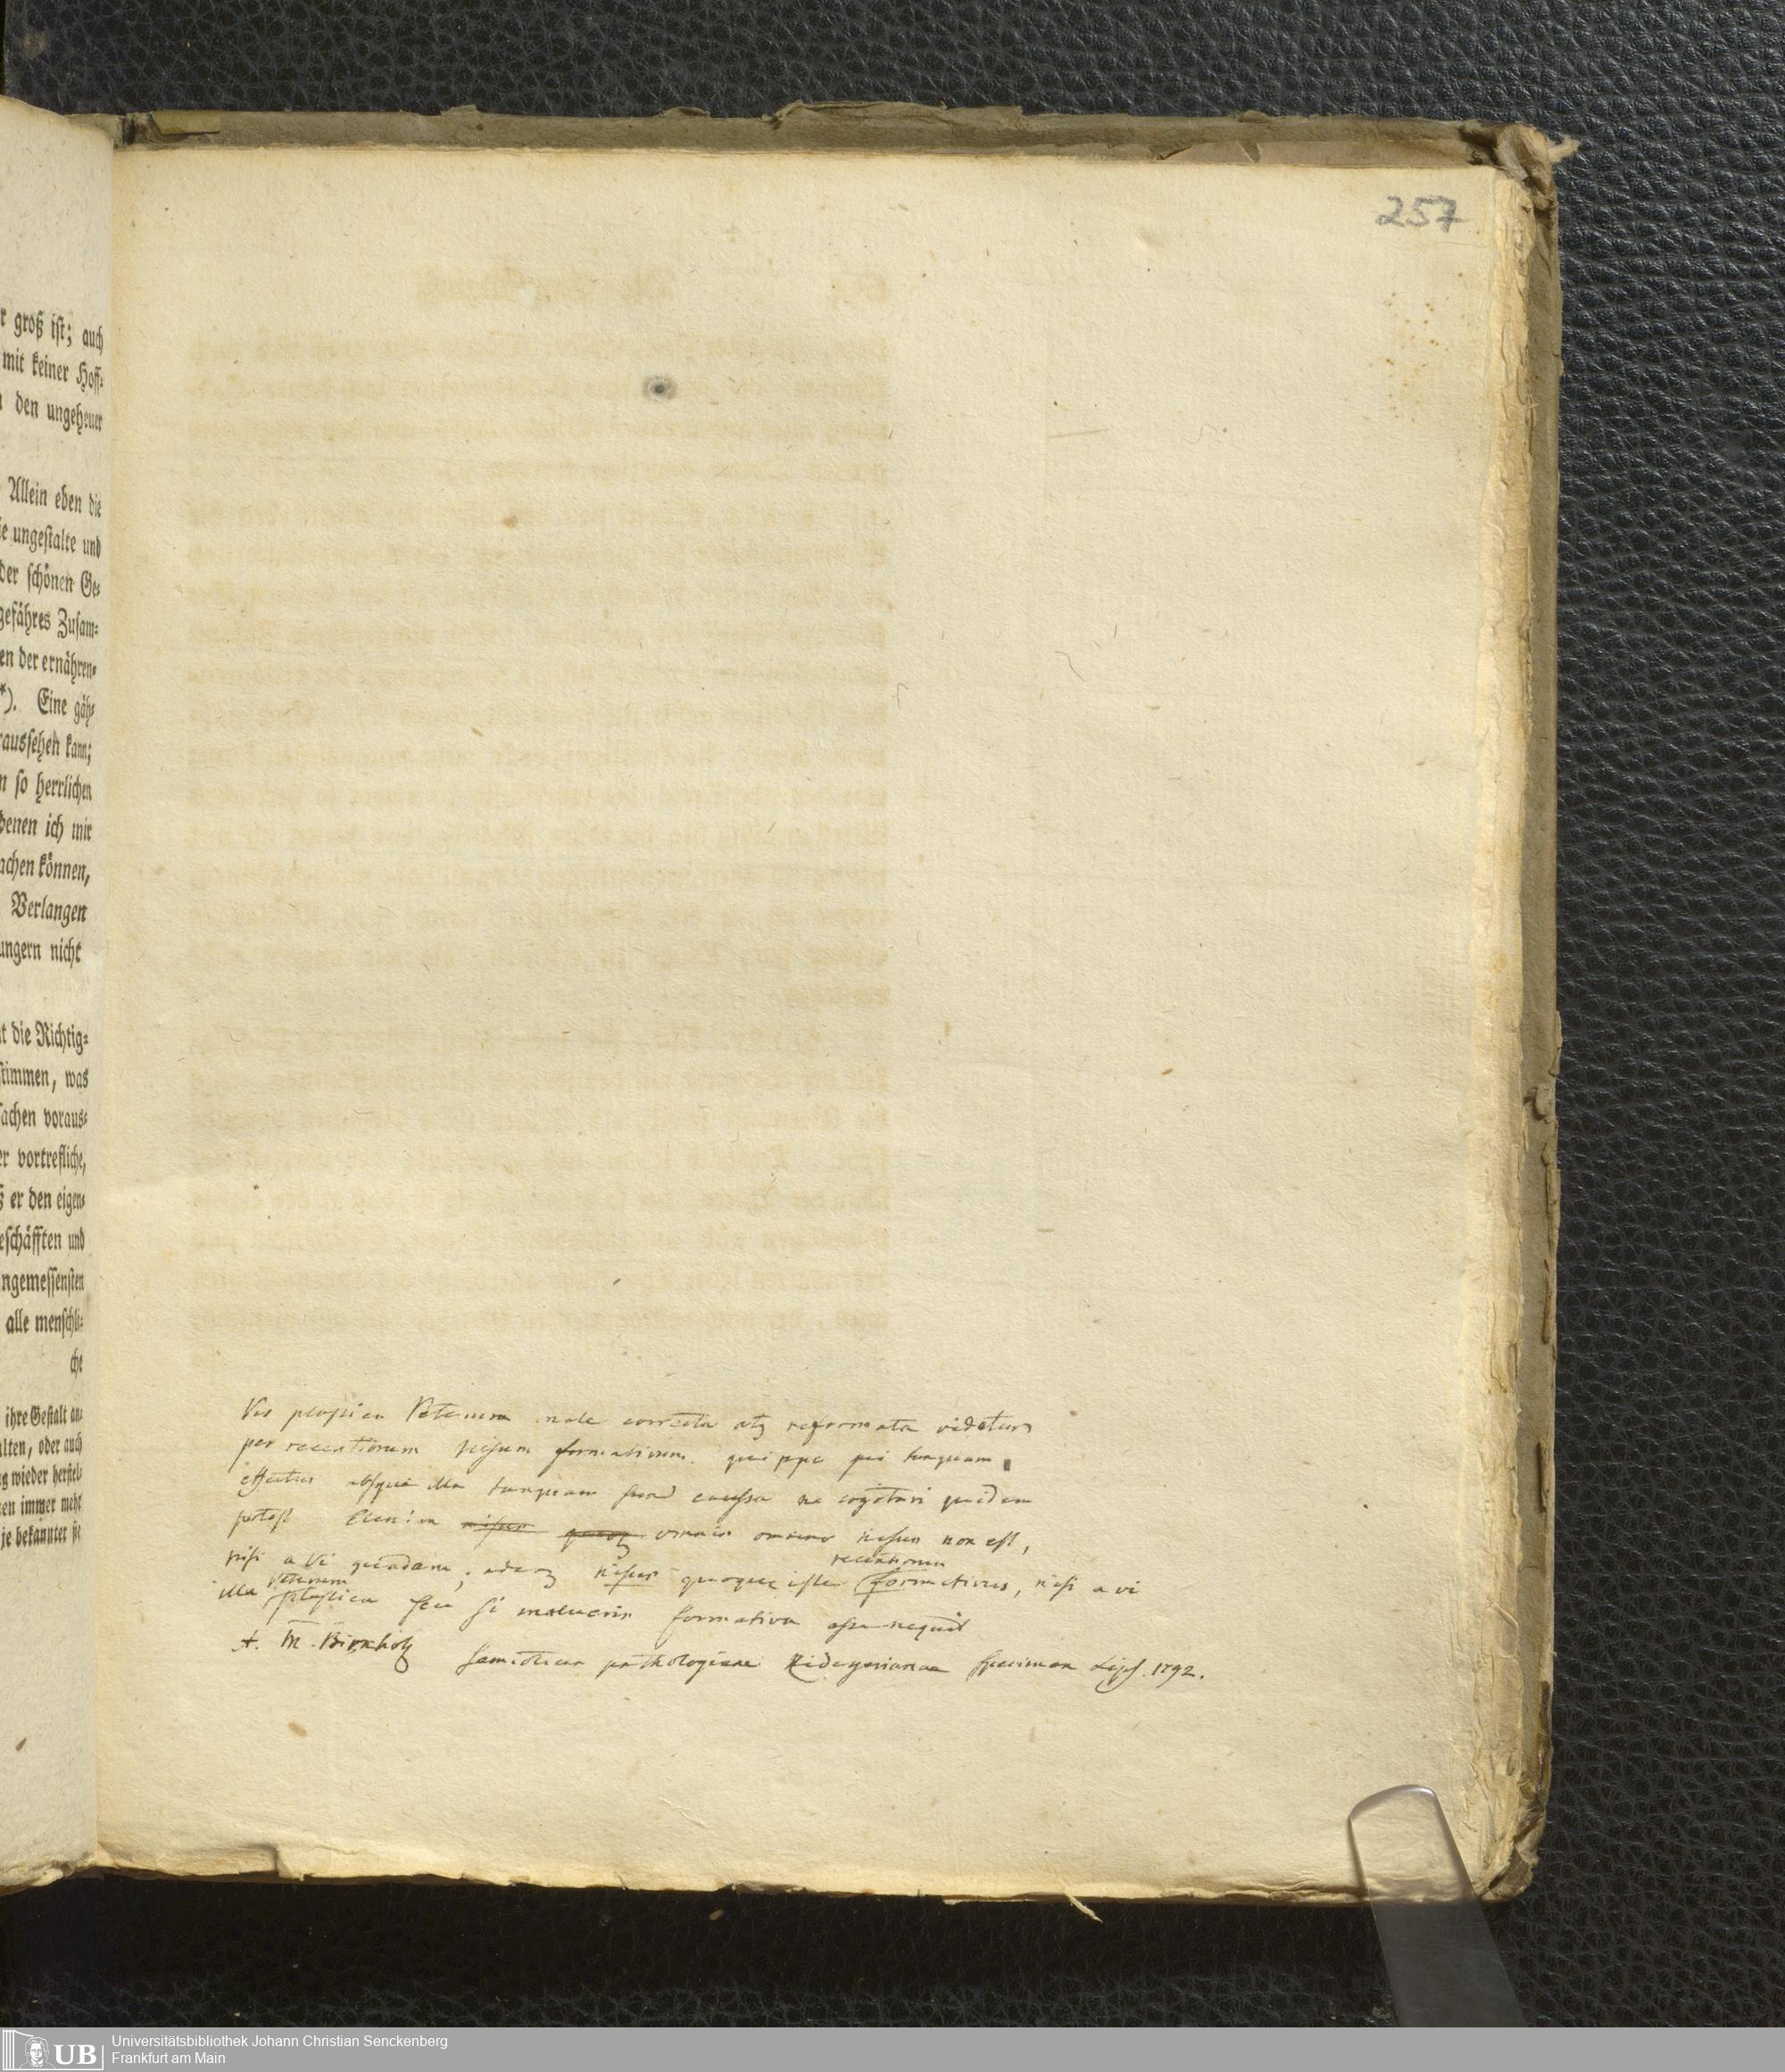 r groß iſt; auch
mit keiner Hoff⸗
den ungeheuer
Allein eben die
ie ungeſtalte und
der ſchönen Ge⸗
gefähres Zuſam⸗
en der ernähren⸗
*). Eine gäh⸗
rausſehen kann;
n ſo herrlichen
denen ich mir
achen können,
Verlangen
ungern nicht
t die Richtig⸗
ſtimmen, was
ſachen voraus⸗
er vortrefliche,
ß er den eigen⸗
eſchäfften und
ngemeſſenſten
alle menſchli⸗
che
ihre Geſtalt an⸗
alten, oder auch
g wieder herſtel⸗
en immer mehr
je bekannter ſie
257
Vis plastica Veterum male correcta atq reformata videtur
per recentiorum nisum formativum. quippe qui tanquam
effectus absque illa tanquam sua caussa ne cogitari quidem
potest Etenim nisus quoq omnis omnino nisus non est,
nisi a vi quadam; adeoq nisus quoque iste recentiorum formativus, nisi a vi
illa Veterum plastica seu si malueris formativa esse nequit
A. M. Birkholz Semioticae pathologicae Specimen Lips. 1792.
UB
Universitätsbibliothek Johann Christian Senckenberg
Frankfurt am Main